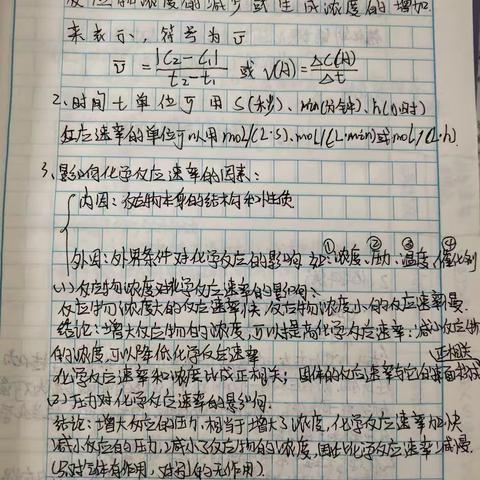 反应物浓度的减少或生成浓度的增加
来表示，符号为 v̄
v̄ = |C₂-C₁| / t₂-t₁ 或 v(A) = ΔC(A) / Δt
2、时间 t 单位可用 S(秒)、min(分钟)、h(小时)
反应速率的单位可以用 mol/(L·S)、mol/(L·min)或mol/(L·h)
3、影响化学反应速率的因素：
内因：反应物本身的结构和性质
外因：外界条件对化学反应的影响 如：①浓度、②压力、③温度、④催化剂
(1)反应物浓度对化学反应速率的影响：
反应物浓度大的反应速率快，反应物浓度小的反应速率慢．
结论：增大反应物的浓度，可以提高化学反应速率；减小反应物
的浓度，可以降低化学反应速率 (正相关)
化学反应速率和浓度比成正相关；固体的反应速率与它的表面积成
(2)压力对化学反应速率的影响．
结论：增大反应的压力，相当于增大了浓度，化学反应速率加快
减小反应的压力，减小了反应物的浓度，因此化学反应速率减慢．
(只对气体有作用，对别的无作用)．